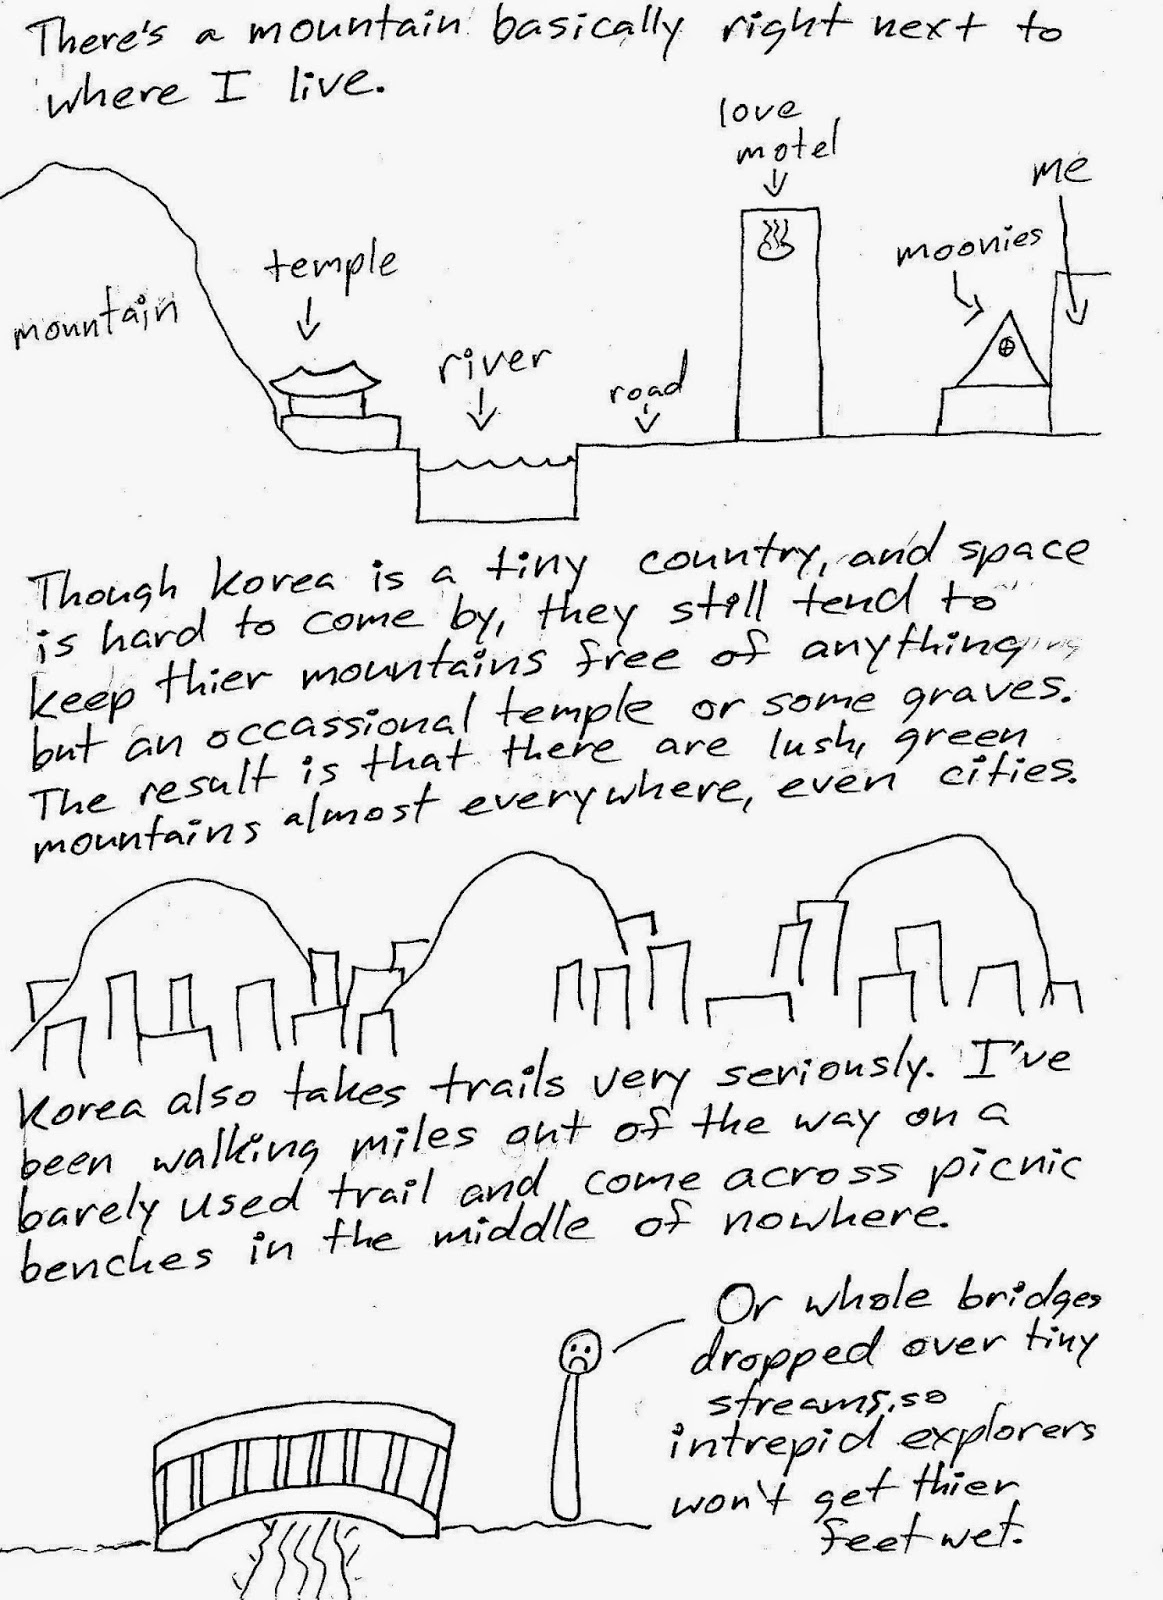 There's a mountain basically right next to
where I live.
love
motel
me
moonies
temple
mountain
river
road
Though Korea is a tiny country, and space
is hard to come by, they still tend to
keep thier mountains free of anything
but an occassional temple or some graves.
The result is that there are lush, green
mountains almost everywhere, even cities.
Korea also takes trails very seriously. I've
been walking miles out of the way on a
barely used trail and come across picnic
benches in the middle of nowhere.
Or whole bridges
dropped over tiny
streams, so
intrepid explorers
won't get thier
feet wet.